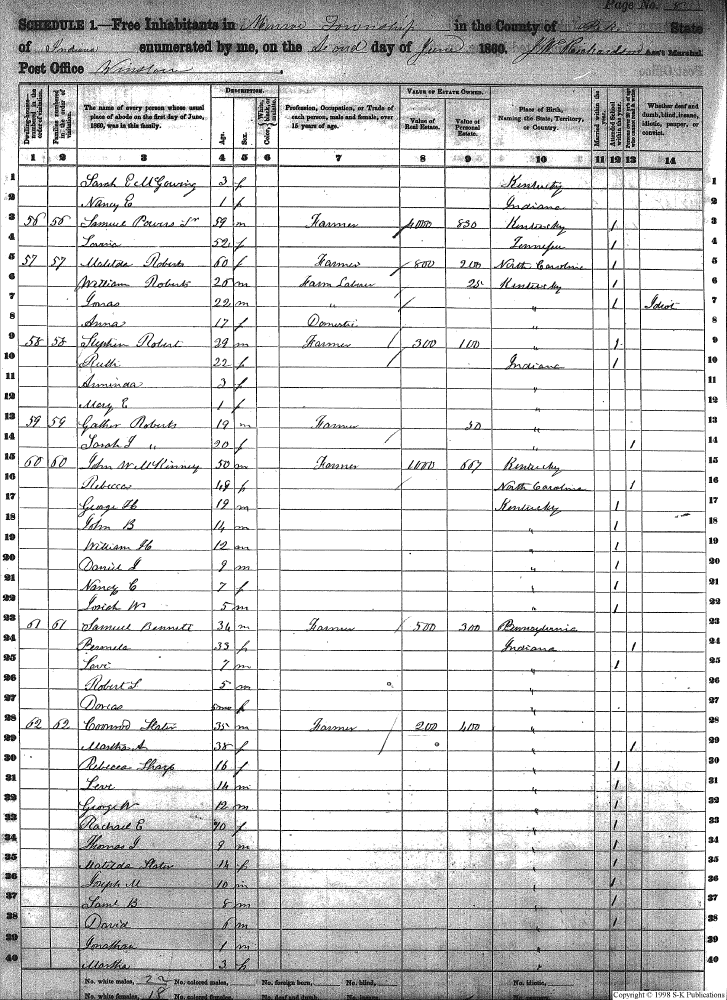 Page No. 8
SCHEDULE 1.—Free Inhabitants in Monroe Township in the County of Pike State
of Indiana enumerated by me, on the Second day of June 1860. J W Richardson Ass't Marshal.
Post Office Winslow.
Dwelling-houses numbered in the order of visitation. Families numbered in the order of visitation. The name of every person whose usual place of abode on the first day of June, 1860, was in this family. DESCRIPTION. Age. Sex. Color, White, black, or mulatto. Profession, Occupation, or Trade of each person, male and female, over 15 years of age. VALUE OF ESTATE OWNED. Value of Real Estate. Value of Personal Estate. Place of Birth, Naming the State, Territory, or Country. Married within the year. Attended School within the year. Whether deaf and dumb, blind, insane, idiotic, pauper, or convict.
1 2 3 4 5 6 7 8 9 10 11 12 13 14
1 Sarah E McGowing 3 f Kentucky 1
2 Nancy E 1 f Indiana 2
3 56 56 Samuel Powers Sr 59 m Farmer 4000 830 Kentucky / 3
4 52 f Tennessee / 4
5 57 57 Matilda Roberts 60 f Farmer 800 200 North Carolina / 5
6 William Roberts 26 m Farm Laborer 25 Kentucky / 6
7 Jonas 22 m " " / Idiot 7
8 Anna 17 f Domestic " 8
9 58 58 Stephen Robert 29 m Farmer 300 100 " / 9
10 Ruth 22 f Indiana / 10
11 Arminda 3 f " 11
12 Mary E 1 f " 12
13 59 59 Roberts 19 m Farmer 50 " 13
14 Sarah J " 20 f " / 14
15 60 60 John W McKinney 50 m Farmer 1000 667 Kentucky 15
16 Rebecca 48 f North Carolina / 16
17 George H 19 m Kentucky / 17
18 John B 14 m " / 18
19 William H 12 m " / 19
20 Daniel J 9 m " / 20
21 Nancy C 7 f " / 21
22 Josiah W 5 m " / 22
23 61 61 Samuel Bennett 34 m Farmer 500 300 Pennsylvania 23
24 Permela 33 f Indiana / 24
25 Levi 7 m " / 25
26 Robert S 5 m " 26
27 Dorcas f " 27
28 62 62 Coonrod Slater 35 m Farmer 200 400 " 28
29 Martha A 38 f " / 29
30 Rebecca Sharp 16 f " / 30
31 Levi 14 m " / 31
32 George W 12 m " / 32
33 Rachael E 10 f " / 33
34 Thomas J 9 m " / 34
35 Matilda Slater 14 f " / 35
36 Joseph M 10 m " / 36
37 Saml B 8 m " / 37
38 David 6 m " / 38
39 Jonathan 1 m " 39
40 Martha 3 f " 40
No. white males, 22 No. colored males, No. foreign born, No. blind, No. idiotic,
No. white females, 18 No. colored females, No. deaf and dumb, No. insane,
Copyright © 1998 S-K Publications